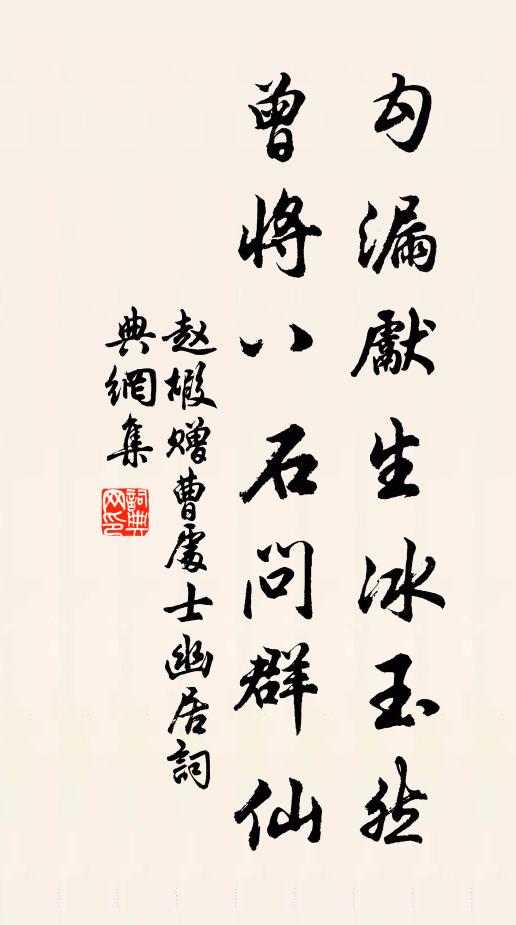 勾漏獻生冰玉然
曾將八石問群仙
赵嘏赠曹處士幽居詞
典網集
詞典
网印